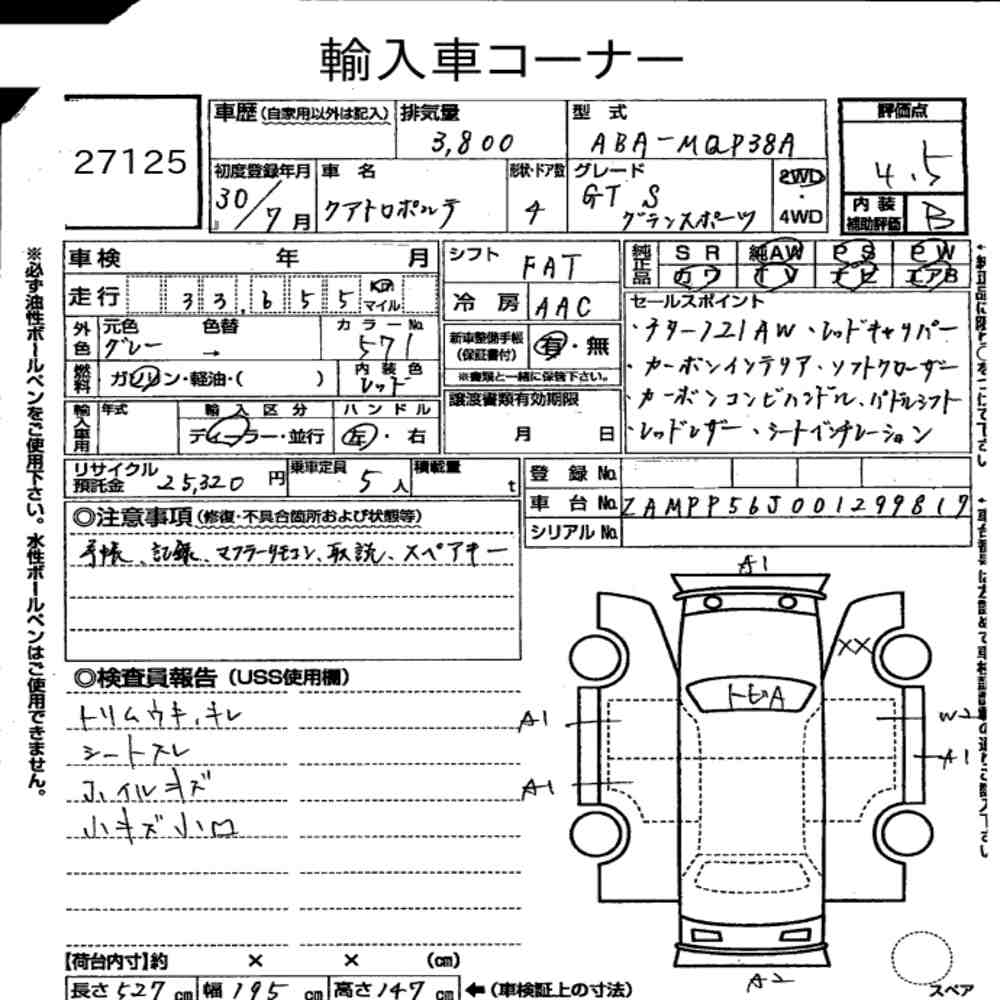 輸入車コーナー
27125
車歴 (自家用以外は記入) 排気量 3,800 型式 ABA-MQP38A
評価点 4.5
初度登録年月 30/7月 車名 クアトロポルテ 形状・ドア数 4 グレード GT S グランスポーツ 2WD・4WD
内装補助評価 B
車検 年 月
走行 33,655 Km マイル
外色 元色 グレー 色替 → カラーNo. 571
燃料 ガソリン・軽油・( ) 内装色 レッド
輸入車用 年式 輸入区分 ディーラー・並行 ハンドル 左・右
シフト FAT
冷房 AAC
新車整備手帳(保証書付) 有・無
※書類と一緒に保管下さい。
譲渡書類有効期限
月 日
純正品 SR 純AW PS PW
カワ TV ナビ エアB
セールスポイント
・チター/21AW・レッドキャリパー
・カーボンインテリア・ソフトクローザー
・カーボンコンビハンドル、パドルシフト
・レッドレザー・シートベンチレーション
リサイクル預託金 25,320円 乗車定員 5人 積載量 t
登録No.
車台No. ZAMPP56J001299817
シリアルNo.
◎注意事項(修復・不具合箇所および状態等)
手帳、記録、マフラーリモコン、取説、スペアキー
◎検査員報告(USS使用欄)
トリムウキ、キレ
シートスレ
ホイルキズ
小キズ小凹
A1
XX
トビA
A1
W2
A1
A1
A2
スペア
【荷台内寸】約 × × (cm)
長さ527cm 幅195cm 高さ147cm ←(車検証上の寸法)
※必ず油性ボールペンをご使用下さい。水性ボールペンはご使用できません。